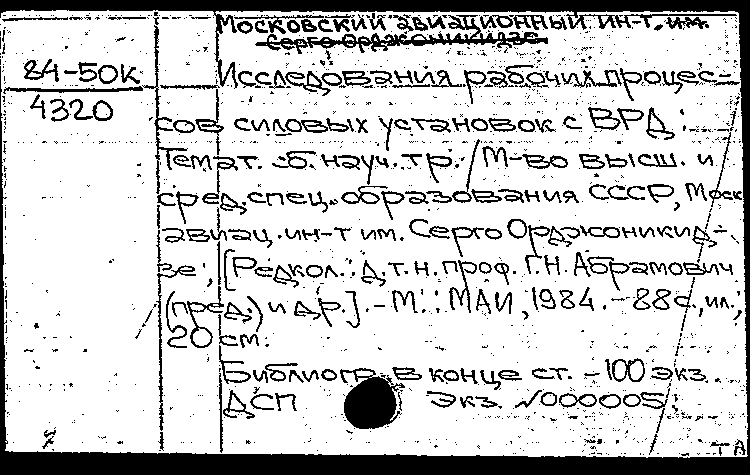 Московский авиационный ин-т. им.
Серго Орджоникидзе
84-50к
4320
Исследования рабочих процес-
сов силовых установок с ВРД:
Темат. сб. науч. тр. / М-во высш. и
сред. спец. образования СССР, Моск
авиац. ин-т им. Серго Орджоникид-
зе; [Редкол.: д.т.н. проф. Г.Н. Абрамович
(пред.) и др.]. - М.: МАИ, 1984. - 88с., ил.;
20 см.
Библиогр. в конце ст. - 100 экз.
ДСП Экз. №000005: